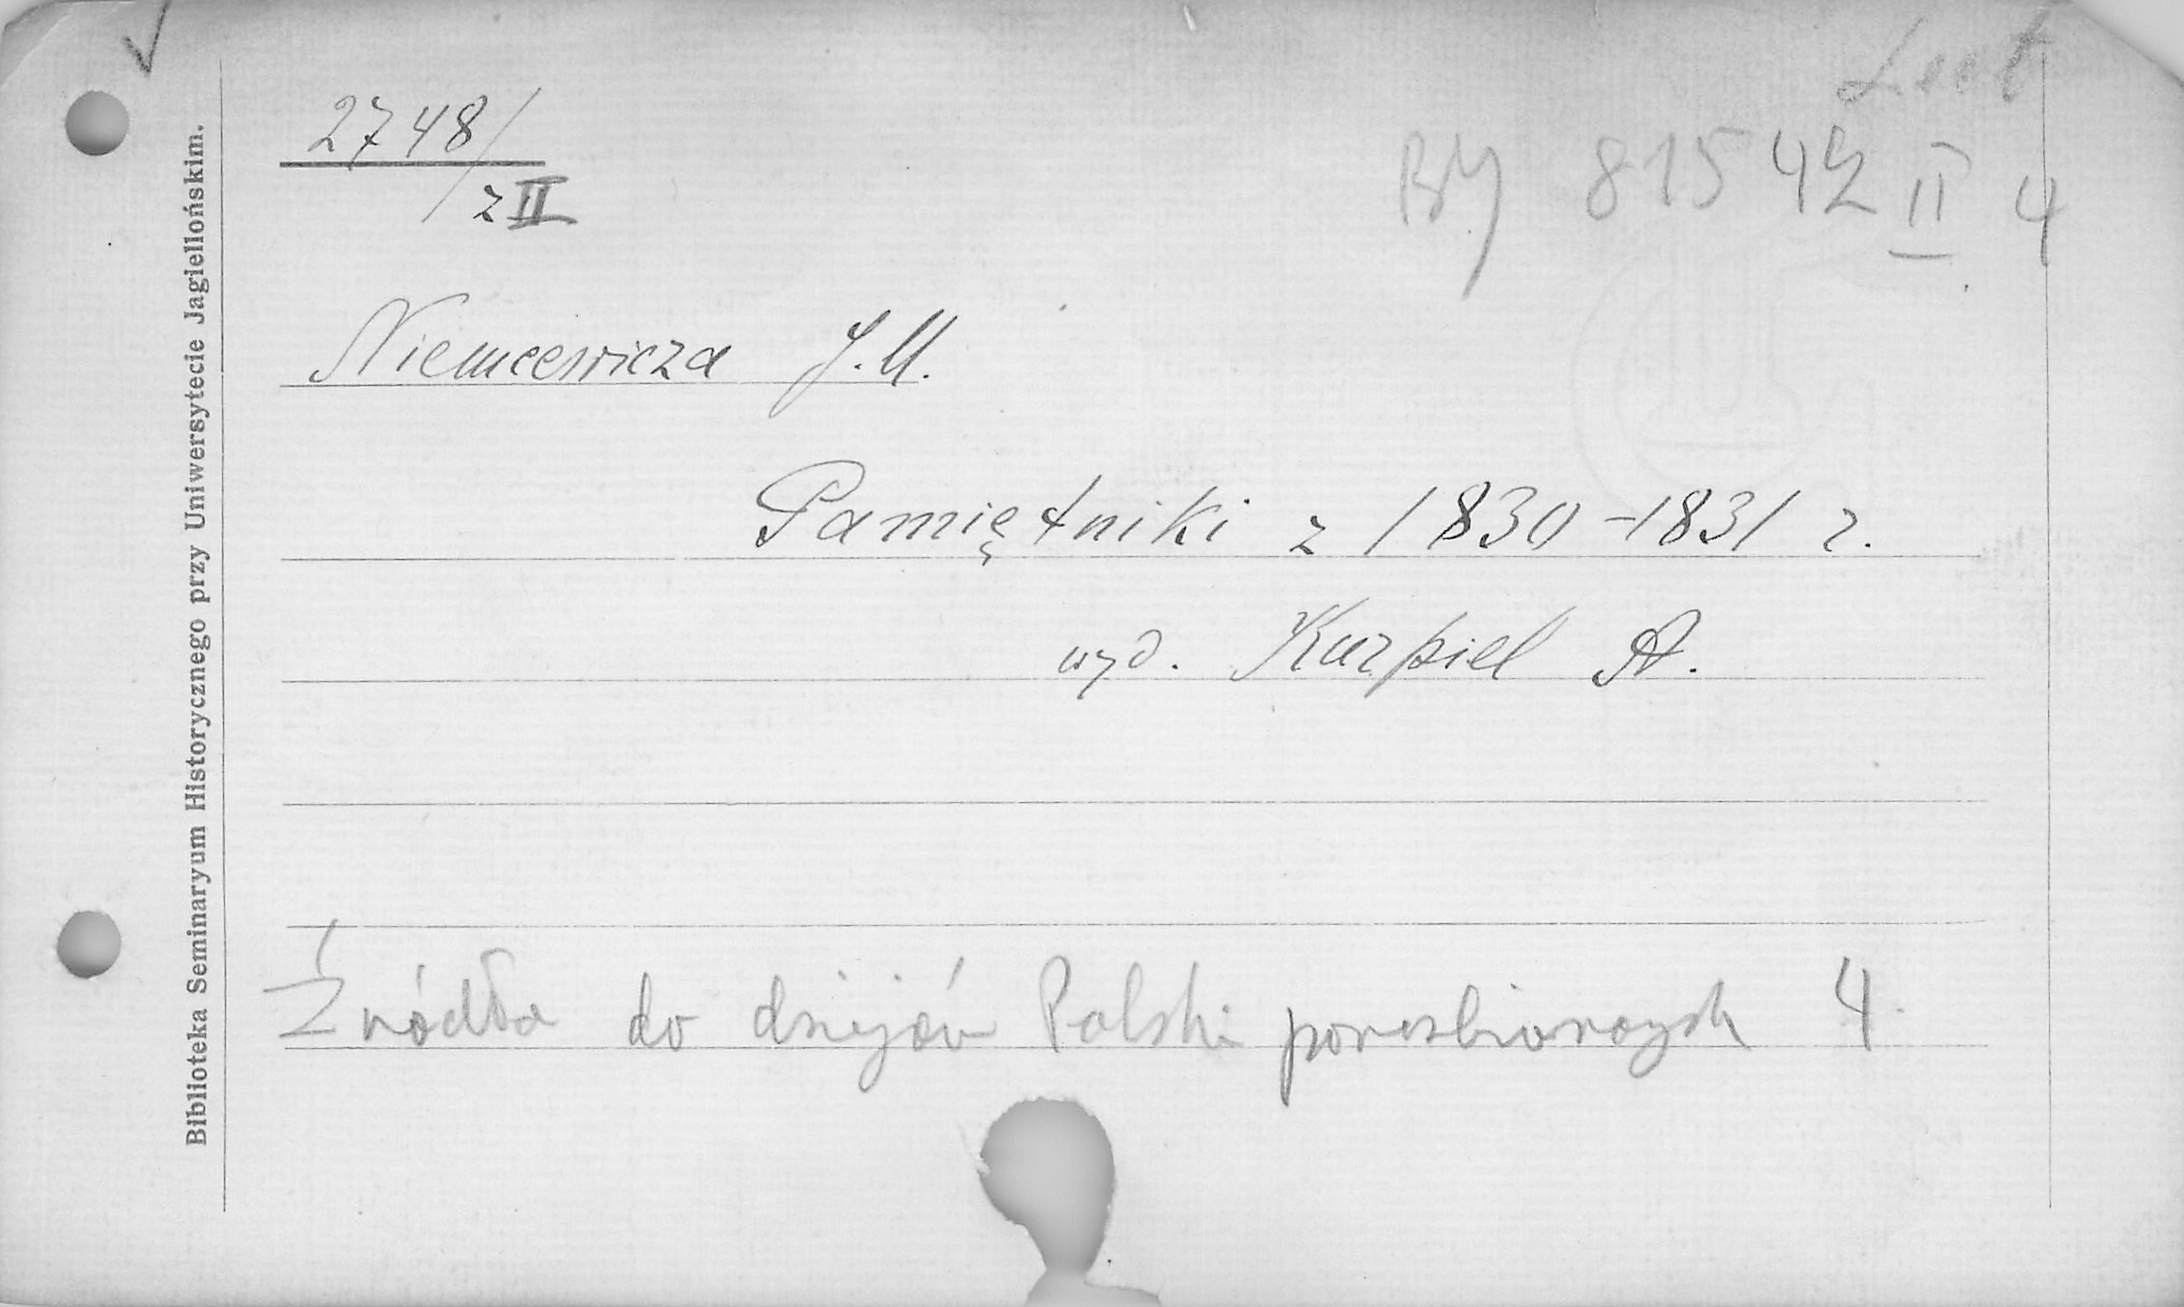 2748/
z II
BY 81542 II 4
Niemcewicza J. U.
Pamiętniki z 1830-1831 r.
wyd. Kurpiel A.
Źródła do dziejów Polski porozbiorowych 4
Biblioteka Seminaryum Historycznego przy Uniwersytecie Jagiellońskim.